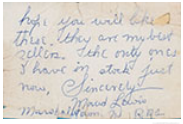 hope you will like
these. they are my best
sellers. the only ones
I have in stock just
now, Sincerely
Maud Lewis
Marshalltown N.S. RR2